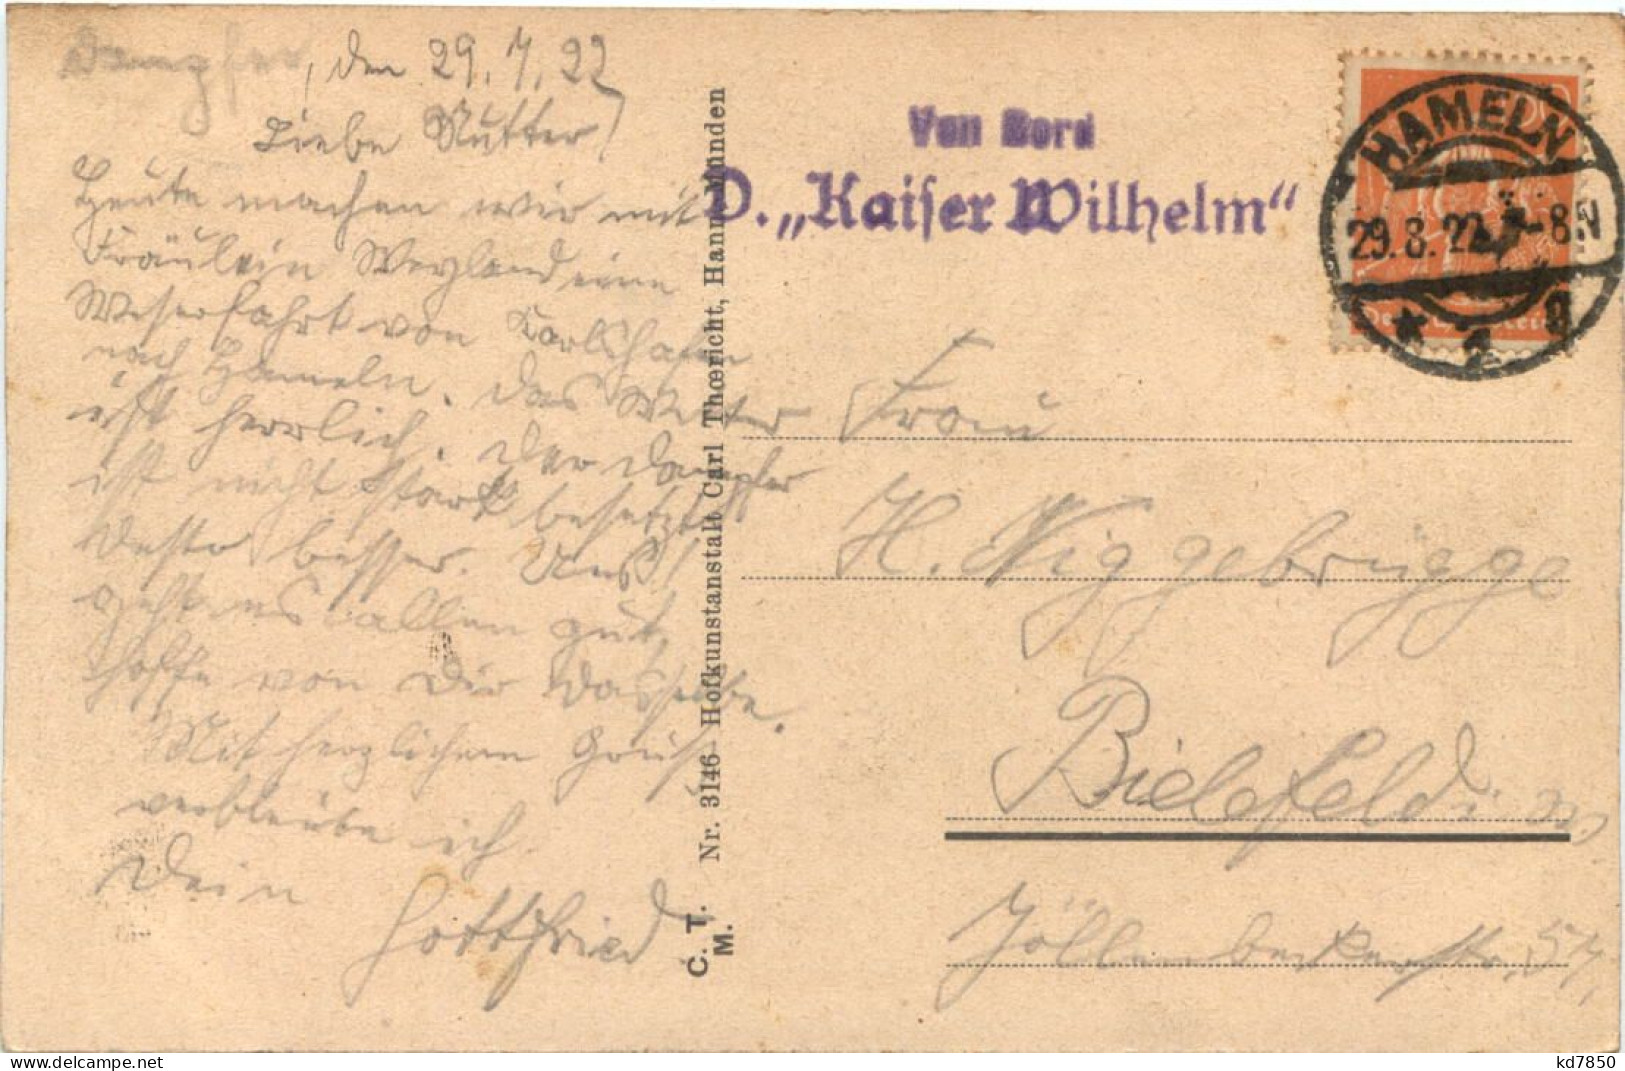 Dampfer, den 29.7.22
Liebe Mutter!
Heute machen wir mit
Fräulein Weyland eine
Weserfahrt von Karlshafen
nach Hameln. Das Wetter
ist herrlich. Der Dampfer
ist nicht stark besetzt
desto besser. Uns
geht es allen gut,
hoffe von Dir dasselbe.
Mit herzlichem Gruß
verbleibe ich
Dein
Gottfried.
C. T. M. Nr. 3146 Hofkunstanstalt Carl Thœricht, Hann. Münden
Von Bord
D. „Kaiser Wilhelm“
HAMELN
29.8.22 -8N
* 2 g
Frau
H. Niggebrügge
Bielefeld i. W.
Jöllenbeckerstr. 57.
kd7850